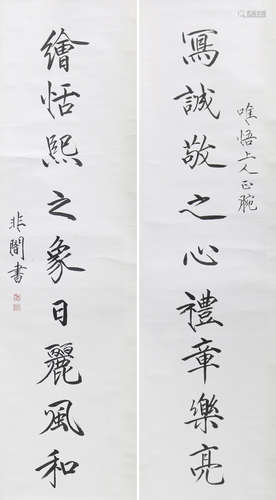 寫誠敬之心禮章樂亮
唯悟上人正腕
繪恬熙之象日麗風和
非闇書